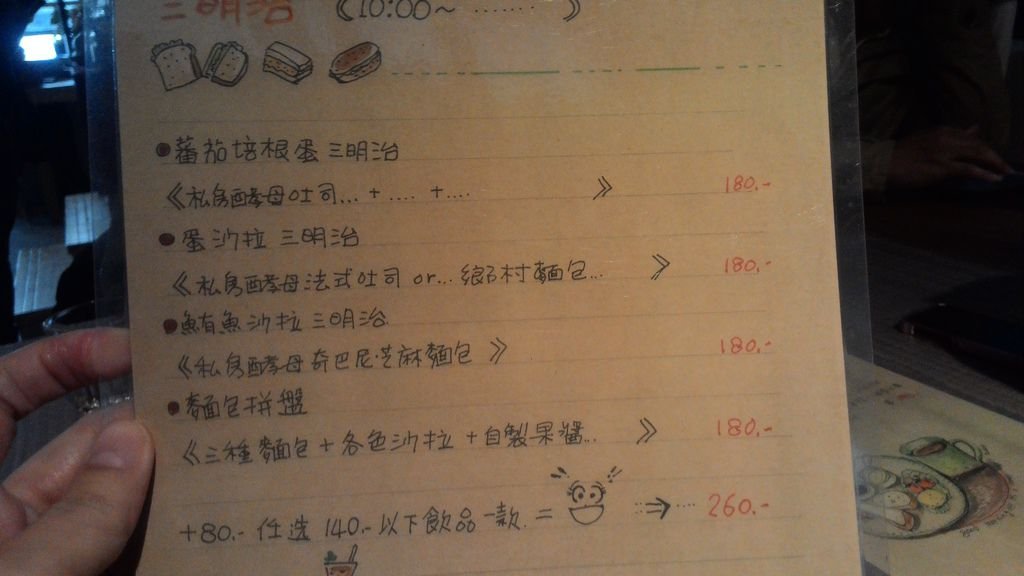 三明治 《10:00～ ....... 》
●蕃茄培根蛋三明治
《私房酵母吐司... + .... +.... 》 180.-
●蛋沙拉 三明治
《私房酵母法式吐司 or... 鄉村麵包... 》 180.-
●鮪魚沙拉三明治
《私房酵母奇巴尼.芝麻麵包 》 180.-
●麵包拼盤
《三種麵包+各色沙拉+自製果醬... 》 180.-
+80.- 任选 140.- 以下飲品一款. = ⇒ ... 260.-